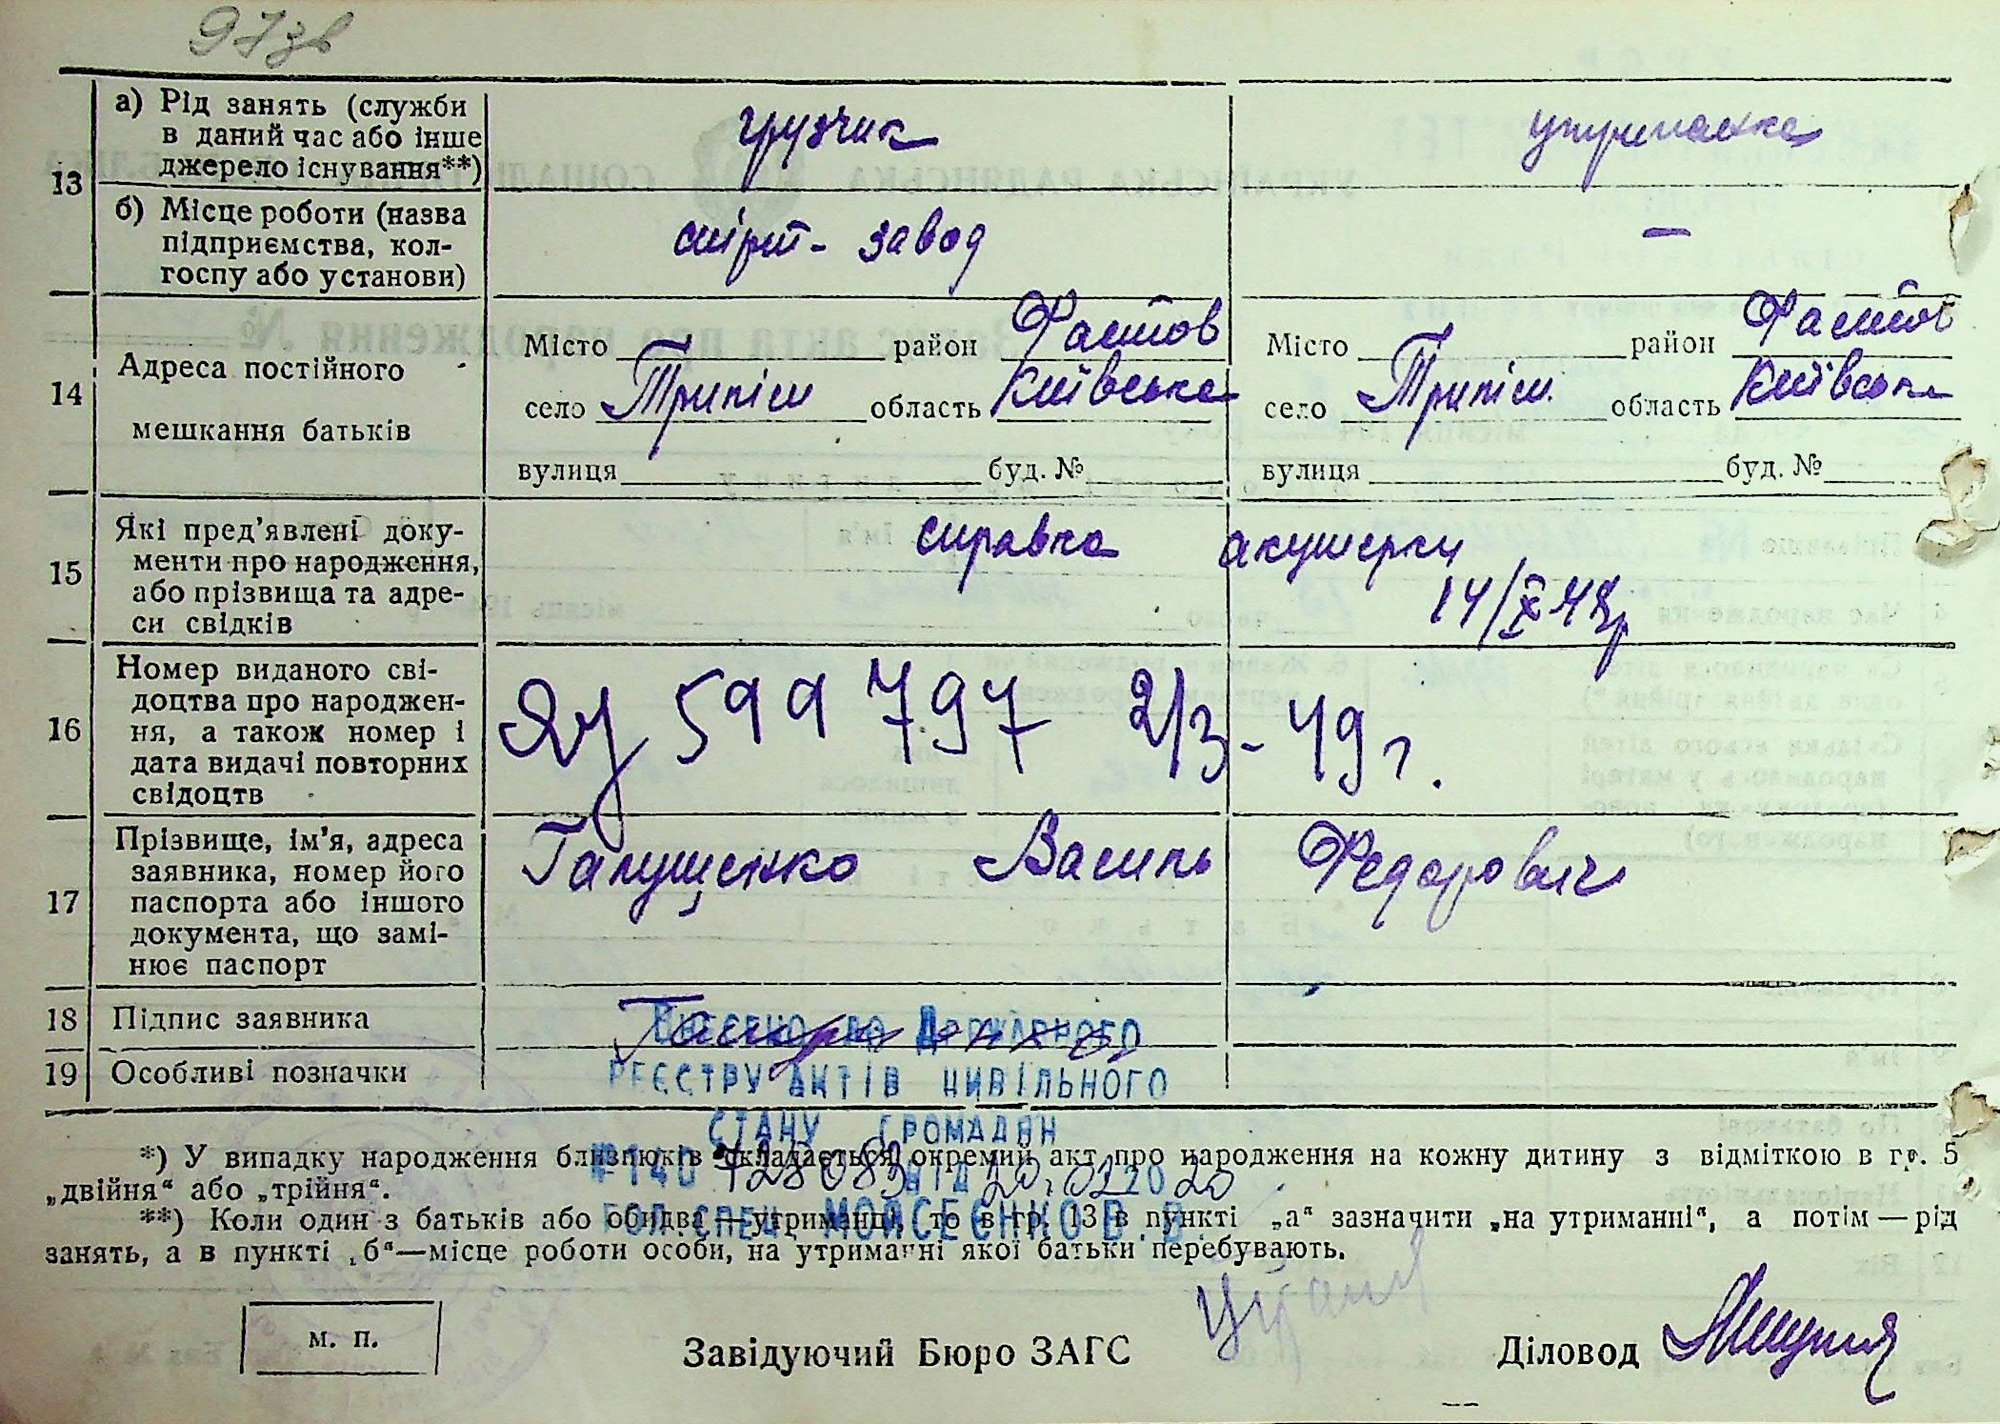 97зв
13
а) Рід занять (служби
в даний час або інше
джерело існування**)
грузчик
утриманка
б) Місце роботи (назва
підприємства, кол-
госпу або установи)
спирт- завод
—
14
Адреса постійного
мешкання батьків
Місто район Фастов
село Трипіси область Київська
вулиця буд. №
Місто район Фастов
село Трипіси область Київська
вулиця буд. №
15
Які пред'явлені доку-
менти про народження,
або прізвища та адре-
си свідків
справка акушерки
14/X 48р
16
Номер виданого сві-
доцтва про народжен-
ня, а також номер і
дата видачі повторних
свідоцтв
599797 2/3-49г.
17
Прізвище, ім'я, адреса
заявника, номер його
паспорта або іншого
документа, що замі-
нює паспорт
Галущенко Василь Федорович
18
Підпис заявника
19
Особливі позначки
Внесено до Державного
реєстру актів цивільного
стану громадян
№140 728083 від 20.02 2020
Гол.спец. Мойсеєнко В.В.
*) У випадку народження близнюків складається окремий акт про народження на кожну дитину з відміткою в гр. 5
„двійня“ або „трійня“.
**) Коли один з батьків або обидва — утриманці, то в гр. 13 в пункті „а“ зазначити „на утриманні“, а потім — рід
занять, а в пункті „б“—місце роботи особи, на утриманні якої батьки перебувають.
м. п.
Завідуючий Бюро ЗАГС
Діловод